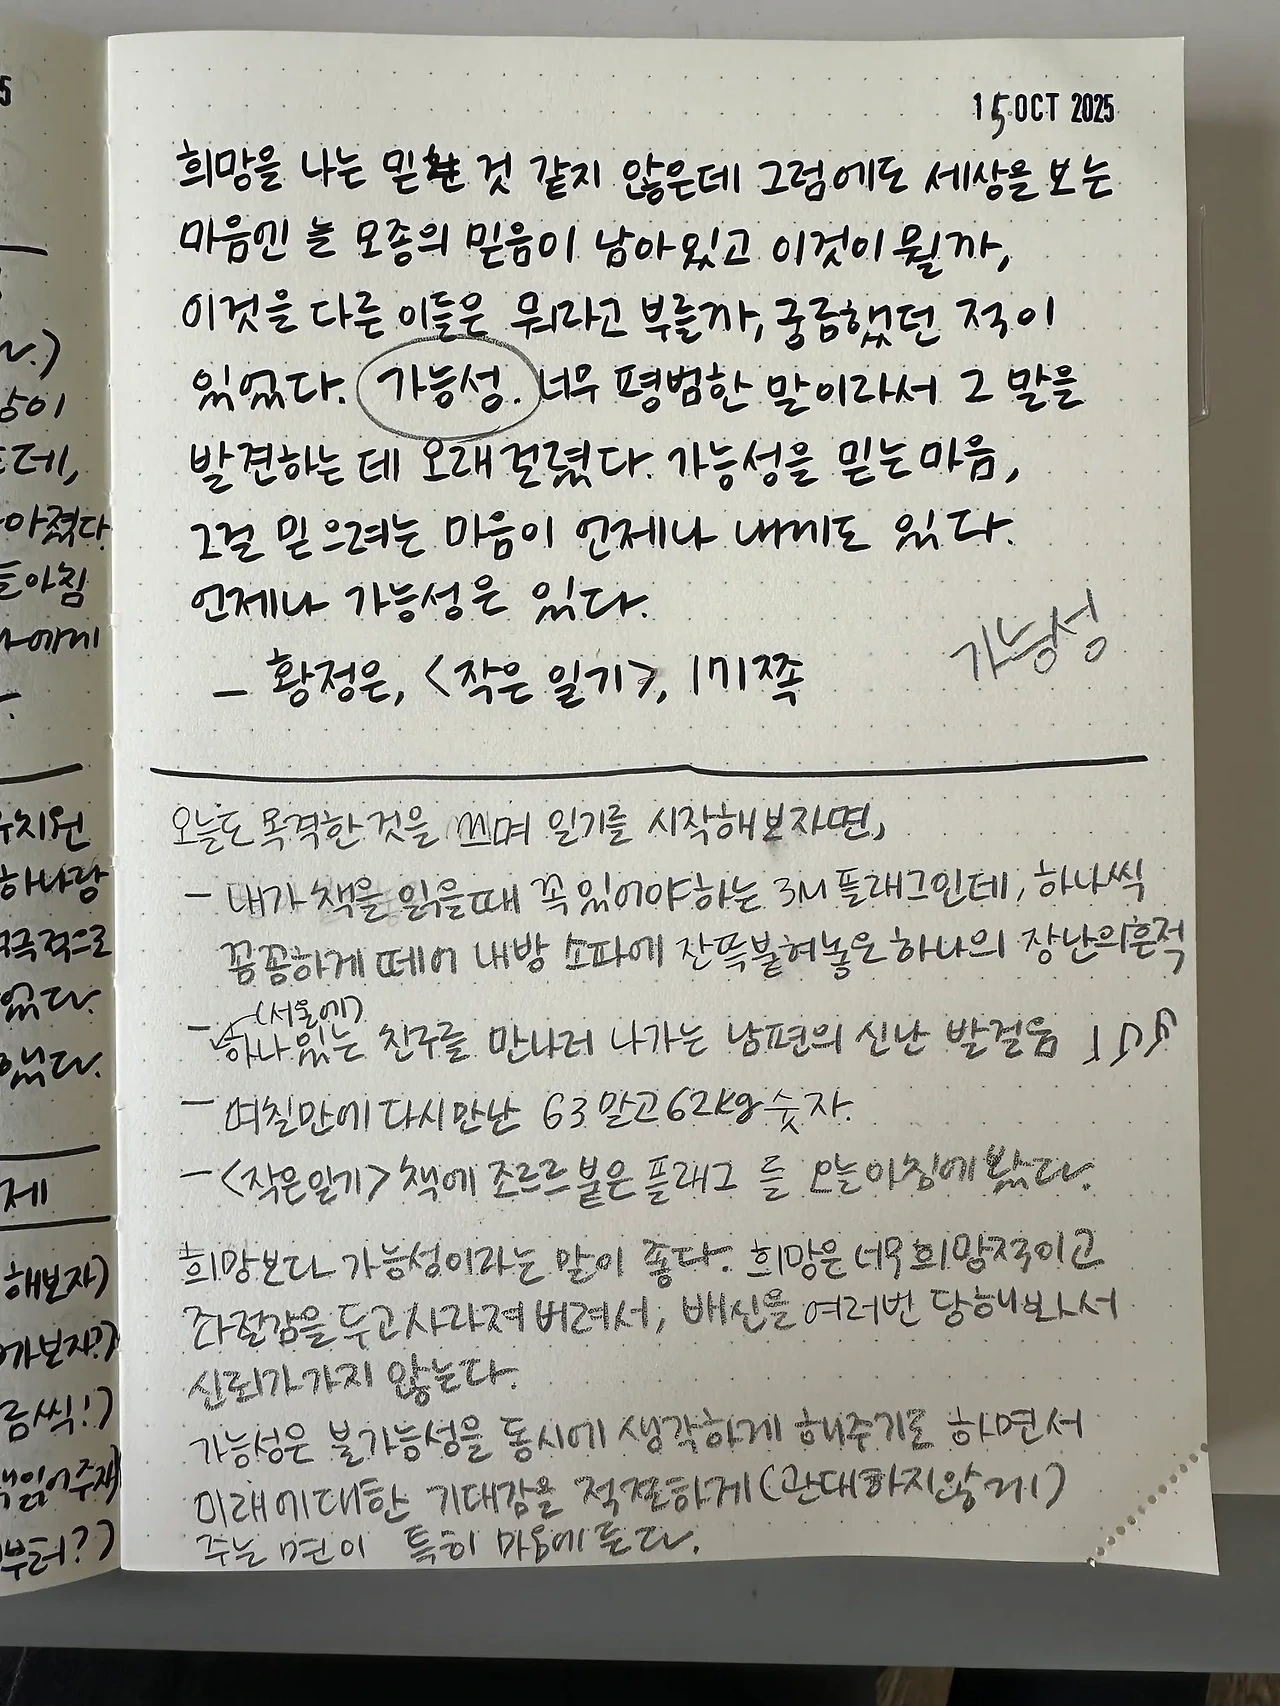 15 OCT 2025
희망을 나는 믿는 것 같지 않은데 그럼에도 세상을 보는
마음엔 늘 모종의 믿음이 남아있고 이것이 뭘까,
이것을 다른 이들은 뭐라고 부를까, 궁금했던 적이
있었다. 가능성. 너무 평범한 말이라서 그 말을
발견하는 데 오래 걸렸다. 가능성을 믿는 마음,
그걸 믿으려는 마음이 언제나 내게도 있다.
언제나 가능성은 있다.
가능성
— 황정은, <작은 일기>, 171쪽
오늘도 목격한 것을 쓰며 일기를 시작해보자면,
— 내가 책을 읽을때 꼭 있어야하는 3M플래그인데, 하나씩
꼼꼼하게 떼어 내방 소파에 잔뜩붙혀놓은 하나의 장난의흔적
(서울에)
— 하나 있는 친구를 만나러 나가는 남편의 신난 발걸음
— 며칠만에 다시만난 63말고 62kg 숫자.
— <작은일기> 책에 조르르 붙은 플래그 를 오늘아침에 봤다.
희망보다 가능성이라는 말이 좋다. 희망은 너무 희망적이고
좌절감을 두고 사라져 버려서, 배신을 여러번 당해봐서
신뢰가 가지 않는다.
가능성은 불가능성을 동시에 생각하게 해주기도 하면서
미래에대한 기대감을 적절하게(관대하지않게)
주는 면이 특히 마음에 든다.
상이
데,
아졌다
아침
에게
유치원
하나랑
적극적으로
있다.
했다.
제
해보자)
가보자?)
씩!)
읽어주자)
부터?)